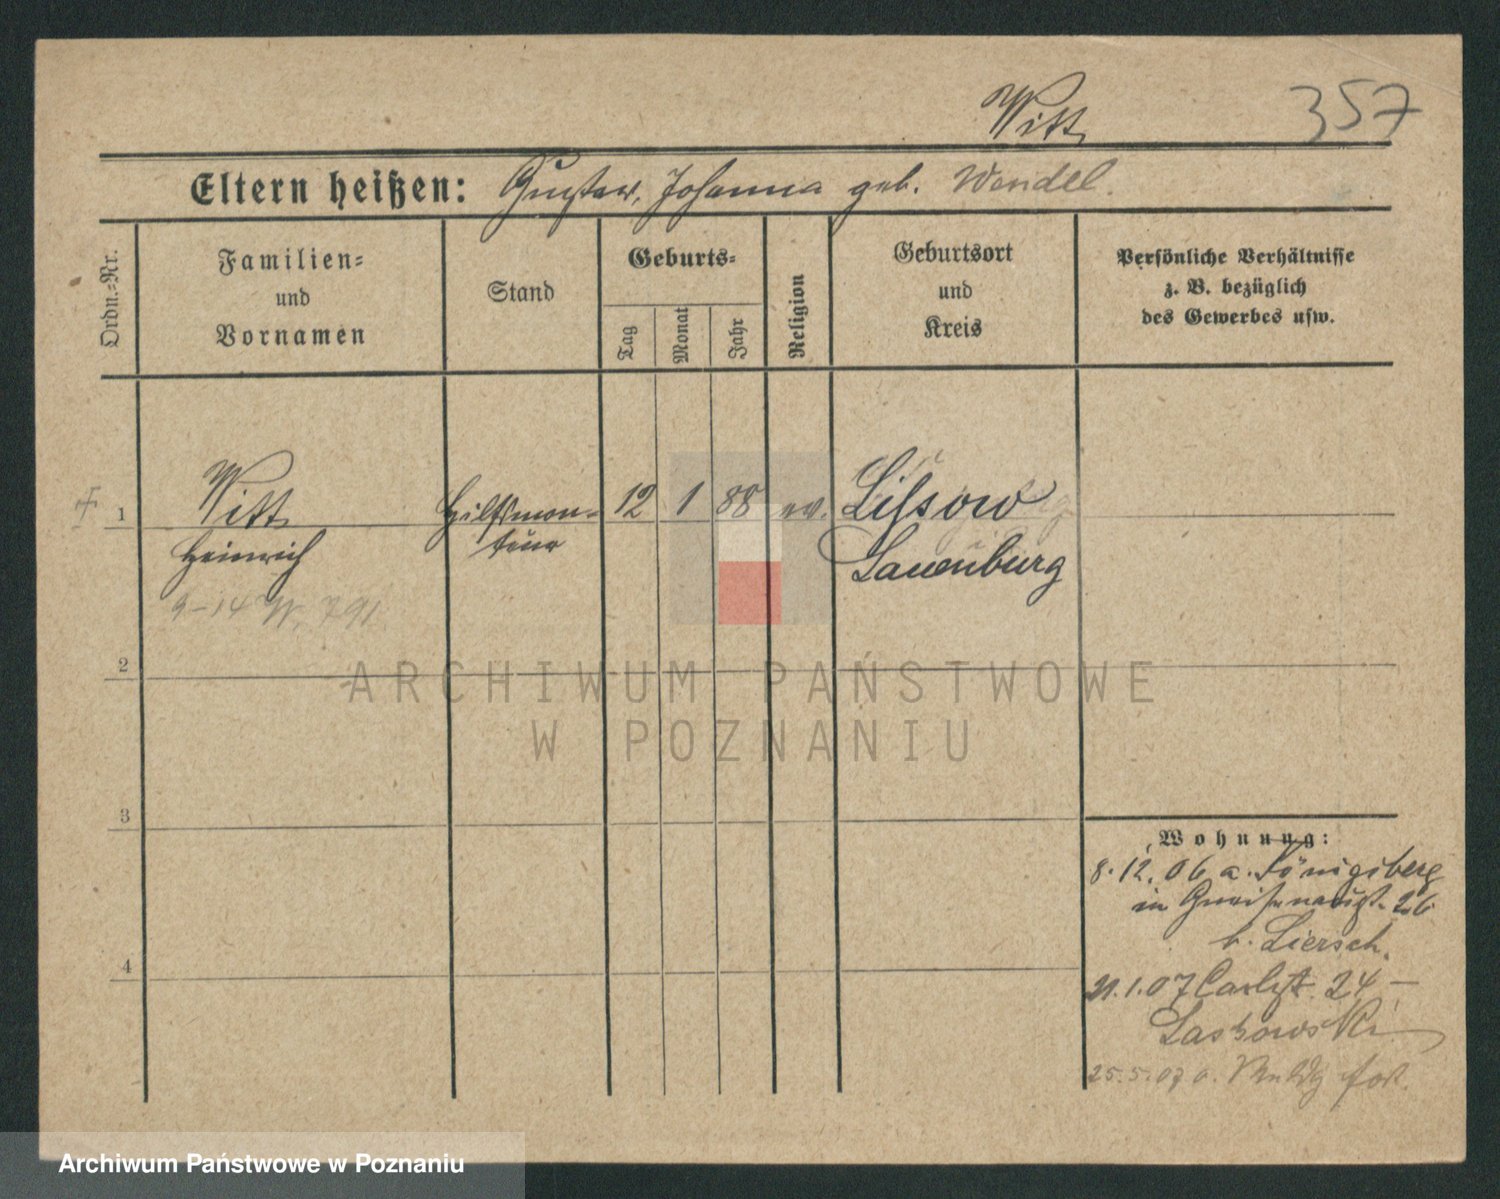 Witt
357
Eltern heißen: Gustav, Johanna geb. Wendel.
Ordn.-Nr.
Familien-
und
Vornamen
Stand
Geburts-
Tag
Monat
Jahr
Religion
Geburtsort
und
Kreis
Persönliche Verhältnisse
z. B. bezüglich
des Gewerbes usw.
1
Witt
Heinrich
Hilfsmon-
teur
12
1
88
ev.
Lissow
Lauenburg
9-14 W. 791
2
3
4
Wohnung:
8.12.06 a. Königsberg
in Gneisenaustr. 26
b. Liersch.
21.1.07 Carlstr. 24 –
Laskowski
25.5.07 o. Meldg fort.
ARCHIWUM PAŃSTWOWE
W POZNANIU
Archiwum Państwowe w Poznaniu